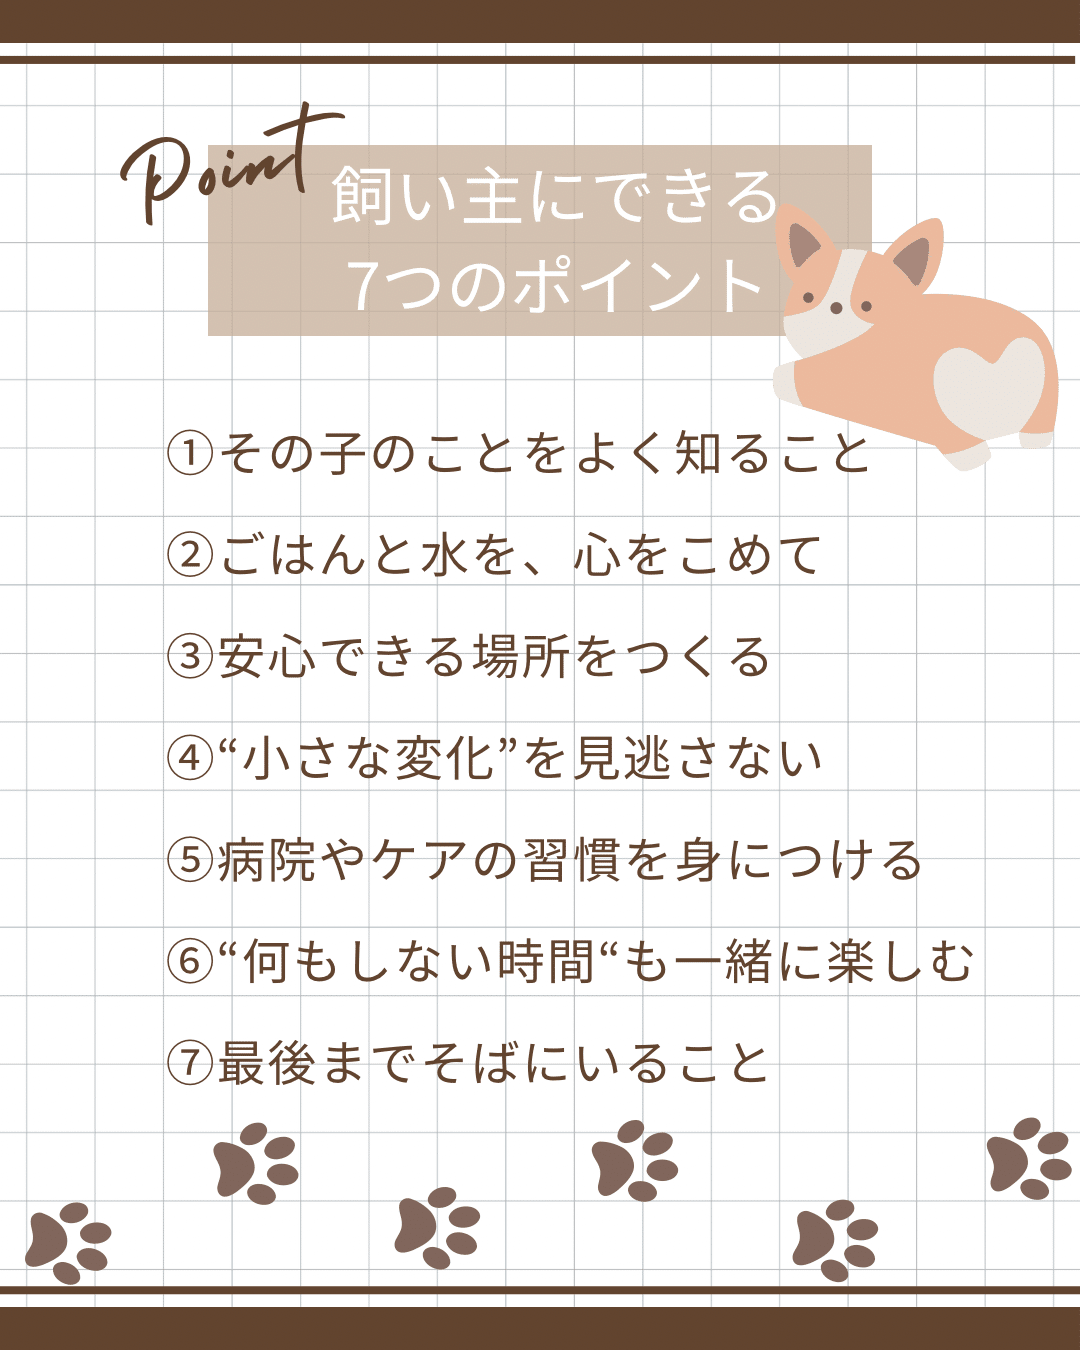 Point
飼い主にできる
7つのポイント
①その子のことをよく知ること
②ごはんと水を、心をこめて
③安心できる場所をつくる
④“小さな変化”を見逃さない
⑤病院やケアの習慣を身につける
⑥“何もしない時間“も一緒に楽しむ
⑦最後までそばにいること